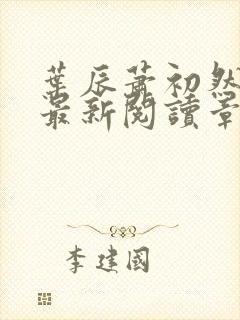 葉辰蕭初然
最新閱讀章
李建國